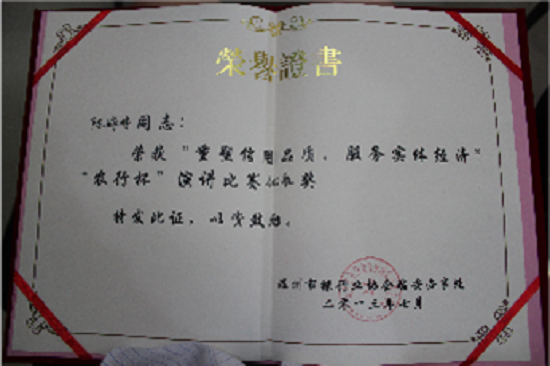 榮譽證書
陈婷婷同志：
荣获“重塑信用品质，服务实体经济”
“农行杯”演讲比赛优胜奖
特发此证，以资鼓励。
温州市银行业协会秘书处
二〇一三年七月